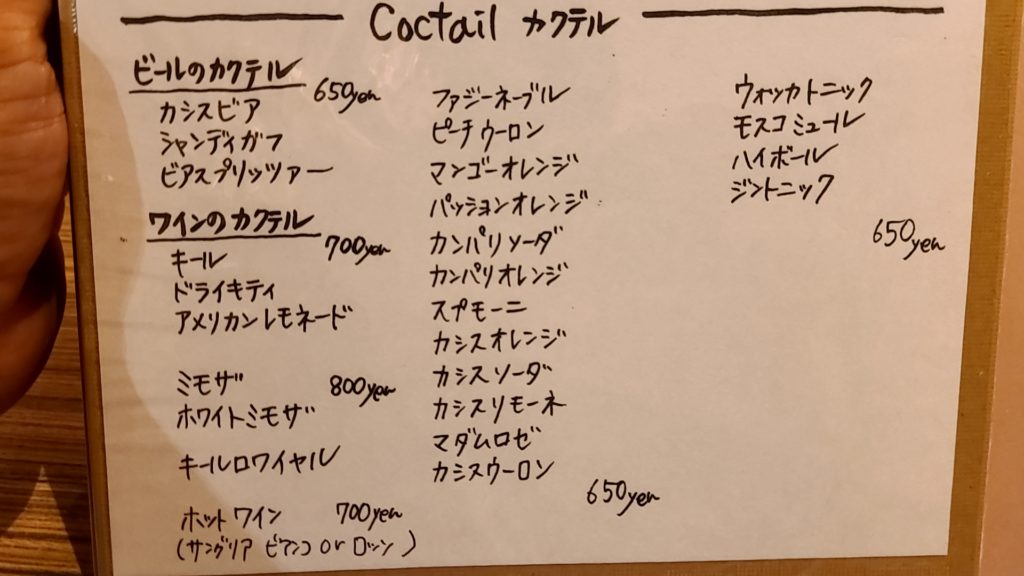 Coctail カクテル
ビールのカクテル
650yen
カシスビア
シャンディガフ
ビアスプリッツァー
ワインのカクテル
700yen
キール
ドライキティ
アメリカンレモネード
ミモザ 800yen
ホワイトミモザ
キールロワイヤル
ホットワイン 700yen
(サングリア ビアンコ or ロッソ)
ファジーネーブル
ピーチウーロン
マンゴーオレンジ
パッションオレンジ
カンパリソーダ
カンパリオレンジ
スプモーニ
カシスオレンジ
カシスソーダ
カシスリモーネ
マダムロゼ
カシスウーロン
650yen
ウォッカトニック
モスコミュール
ハイボール
ジントニック
650yen